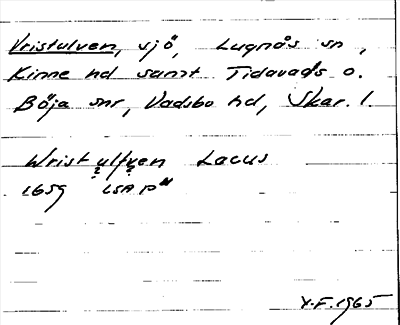 Vristulven, sjö, Lugnås sn,
Kinne hd samt Tidavads o.
Böja snr, Vadsbo hd, Skar. l.
Wrist ulfven Lacus
? ?
1659 LSA P"
Y.F. 1965